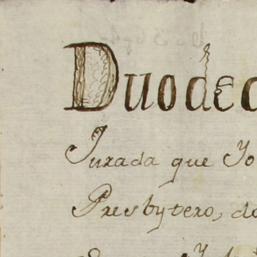 Duodec
Jurada que Yo
Presbytero, do